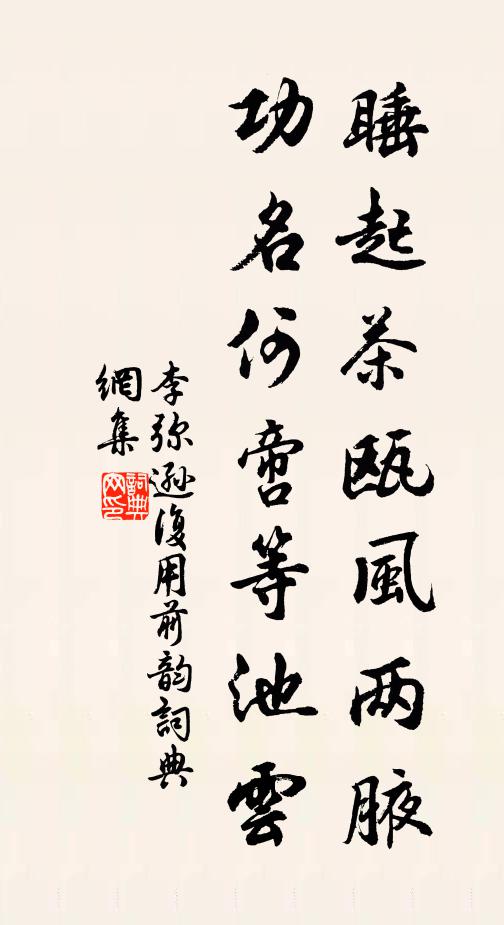 睡起茶瓯風两腋
功名何啻等池雲
李弥遜復用前韵詞典
網集
詞典网印